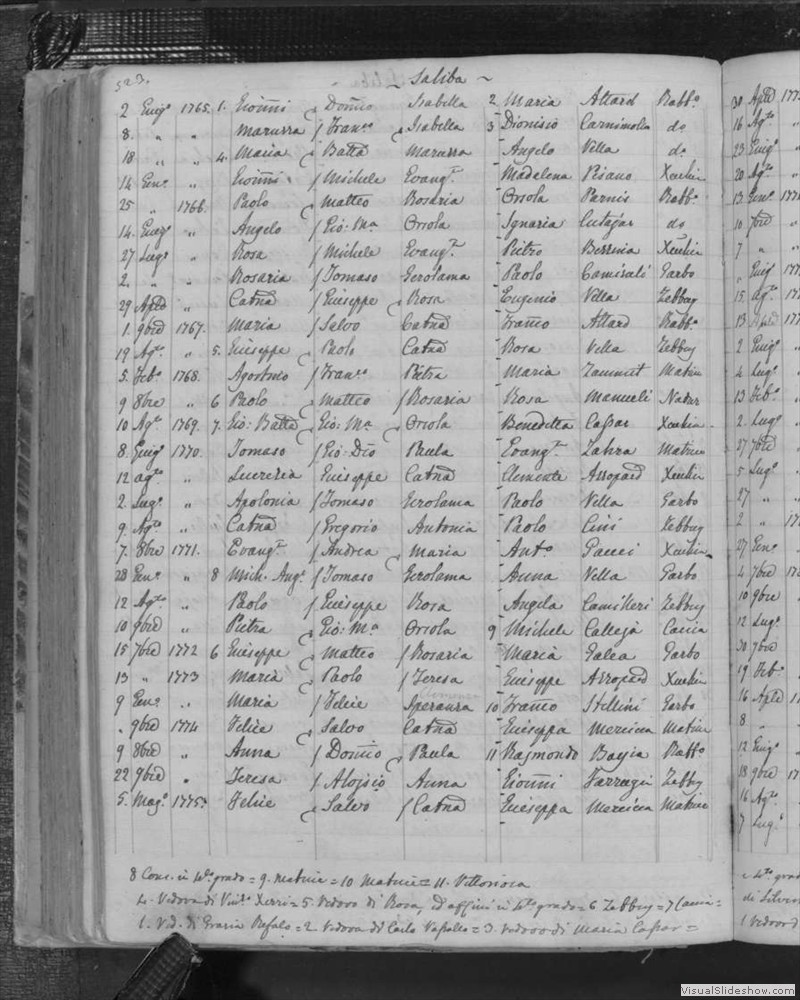 523.
~ Saliba ~
2 Giug.º 1765. 1. Gioñni Doñco Isabella 2 Maria Attard Rabb.º
8. „ „ Maruzza / Fran.co Isabella 3 Dionisio Carnimolla d.º
18 „ „ 4. Maria Batta Maruzza Angelo Villa d.º
14 Gen.º „ Gioñni / Michele Evang.ta Madalena Pisano Xeukia
25 „ 1766. Paolo Matteo Rosaria Orsola Parnis Rabb.º
14. „ Angelo / Gio: M.a Orsola Ignazia Cutajar do
27 Lug.º „ Rosa / Michele Evang.ta Pietro Xeukia
2. „ „ Rosaria / Tomaso Gerolama Paolo Camisuli Garbo
29 Aplẽ „ Catñа / Giuseppe Rosa Eugenio Villa Zebbug
1. 9bre 1767. Maria / Salvo Catña Franco Attard Rabb.º
19 Ag.to „ 5. Giuseppe Paolo Catña Rosa Vella Zebbug
5. Feb.º 1768. Agostino / Fran.co Pietra Maria Zammut Matrice
9 8bre „ 6 Paolo Matteo / Rosaria Rosa Manueli Nadur
10 Ag.to 1769. 7. Gio: Batta Gio: M.a Orsola Benedetta Caspar Xeukia
8. Giug.º 1770. Tomaso / Gio: Dõ Paula Evang.ta Labra Matrice
12 ag.to „ Lucrezia Giuseppe Catña Clemente Azzopard Xeukia
2. Lug.º „ Apolonia / Tomaso Gerolama Paolo Villa Garbo
9. Ag.to „ Catña / Gregorio Antonia Paolo Cini Zebbug
7. 8bre 1771. Evang.ta / Andrea Maria Ant.º Xeukia
28 Gen.º „ 8 Mich. Ang.º / Tomaso Gerolama Anna Villa Garbo
12 Ag.to „ Paolo / Giuseppe Rosa Angela Camilleri Zebbug
10 9bre „ Pietra Gio: M.a Orsola 9 Michele Calleja Caccia
15 7bre 1772 6 Giuseppe Matteo / Rosaria Maria Galea Garbo
13 „ 1773 Maria Paolo / Teresa Giuseppe Azzopard Xeukia
9 Gen.º „ Maria / Felice Speranza 10 Franco Stellini Garbo
„ 9bre 1774 Felice Salvo Catña Giuseppa Mercieca Matrice
9 8bre „ Anna / Doñco Paula 11 Rajmondo Bajia Rabb.º
22 9bre „ Teresa / Alojsio Anna Gioñni Farrugia Zebbug
5. Mag.º 1775. Felice Salvo / Catña Giuseppa Mercieca Matrice
8 Cons. in 4.to grado = 9. Matrice = 10 Matrice = 11. Vittoriosa
4. Vedova di Vin.º Xerri = 5. Vedovo di Rosa, ed affini in 4.to grado = 6 Zebbug = 7 Caccia =
1. Ved. di Grazia Refalo = 2 Vedova di Carlo Vassallo = 3. Vedovo di Maria Caspar =
30 Aplẽ 177
16 Ag.to „
23 Giug.º
20 Ag.to
13 Gen.º 177
10 7bre „
7 „ „
„ Giug.º 177
15. ag.to 17
13 Aplẽ 177
2 Giug.º
4 Lug.º
13 Feb.º
2. Lug.º
27 7bre
5 Lug.º
27 „
2 „ 17
27 Gen.º
4 7bre 17
10 9bre
12 Lug.º
30 7bre
19 Feb.º
16 Aplẽ 1
8 „
12 Giug.º
18 9bre 17
16 Ag.to
7 Lug.º
4.to grad
di
1 Vedovo d
VisualSlideshow.com